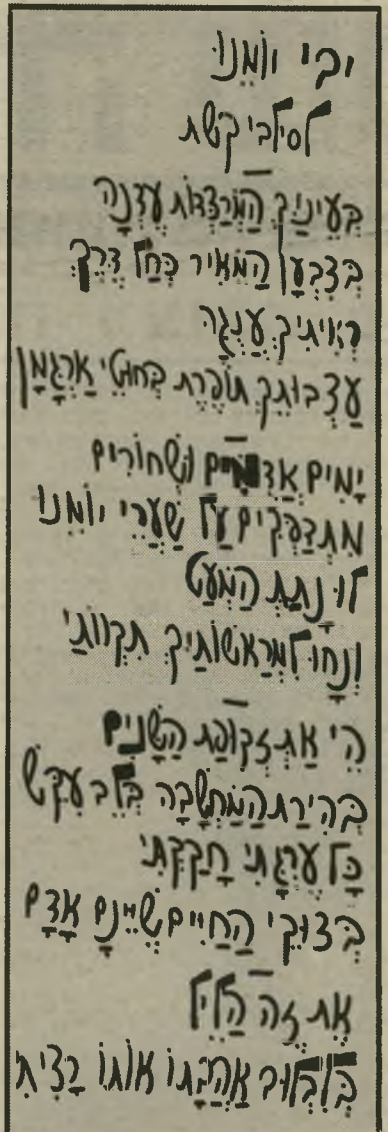 יבי יומנו
לסילבי קשת
בְּעֵינַיִךְ הַמְרַצְּדוֹת עֶדְנָה
בְּצִבְעָן הַמֵּאִיר כְּחֹל דַּרְךְּ
רְאִיתִיךְ עֲנֻגָּה
עַצְבוּתֵךְ תּוֹפֶרֶת בְּחוּטֵי אַרְגָּמָן
יָמִים אֲדֻמִּים וּשְׁחוֹרִים
מִתְדַּפְּקִים עַל שַׁעֲרֵי יוֹמֵנוּ
לוּ נָתַתְּ הַמְּעַט
וְנָחוּ לִמְרַאֲשׁוֹתַיִךְ תִּקְווֹתַי
הֵי אַתְּ זְקוּפַת הַשָּׁנִים
בְּהִירַת הַמַּחְשָׁבָה בְּלֵב עִקֵּשׁ
כָּל עֶרְגָתִי חָקַקְתִּי
בְּצוּקֵי הַחַיִּים שֶׁיֵּינָם אָדָם
אֶת זֶה הַלֵּיל
בְּלִבְלוּב אַהֲבָתוֹ אוֹתוֹ רָצִית